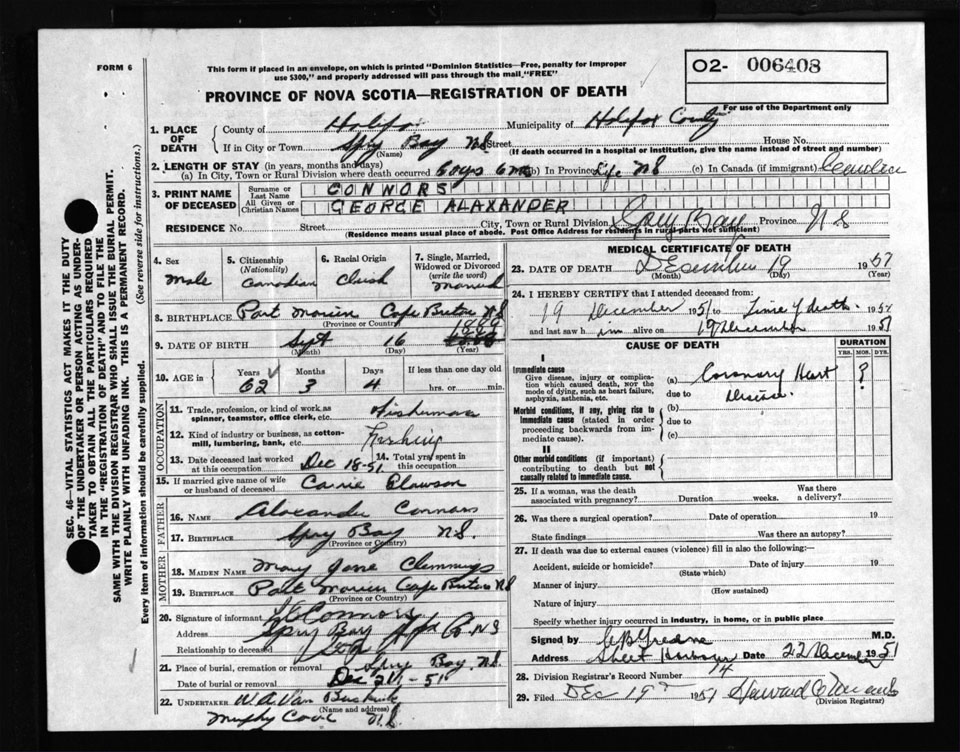 FORM 6
This form if placed in an envelope, on which is printed "Dominion Statistics—Free, penalty for improper
use $300," and properly addressed will pass through the mail "FREE"
O2- 006408
For use of the Department only
PROVINCE OF NOVA SCOTIA—REGISTRATION OF DEATH
SEC. 46—VITAL STATISTICS ACT MAKES IT THE DUTY
OF THE UNDERTAKER OR PERSON ACTING AS UNDER-
TAKER TO OBTAIN ALL THE PARTICULARS REQUIRED
IN THE "REGISTRATION OF DEATH" AND TO FILE THE
SAME WITH THE DIVISION REGISTRAR WHO SHALL ISSUE THE BURIAL PERMIT.
WRITE PLAINLY WITH UNFADING INK. THIS IS A PERMANENT RECORD.
Every item of information should be carefully supplied. (See reverse side for instructions.)
1. PLACE OF DEATH County of Halifax Municipality of Halifax County
If in City or Town Spry Bay NS Street House No.
(Name) (If death occurred in a hospital or institution, give the name instead of street and number)
2. LENGTH OF STAY (in years, months and days)
(a) In City, Town or Rural Division where death occurred (b) In Province Life NS (c) In Canada (if immigrant)
3. PRINT NAME OF DECEASED Surname or Last Name CONNORS
All Given or Christian Names GEORGE ALAXANDER
RESIDENCE No. Street City, Town or Rural Division Spry Bay Province N S
(Residence means usual place of abode. Post Office Address for residents in rural parts not sufficient)
4. Sex
Male
5. Citizenship (Nationality)
Canadian
6. Racial Origin
7. Single, Married, Widowed or Divorced (write the word)
Married
8. BIRTHPLACE Port Morien Cape Breton NS
(Province or Country)
9. DATE OF BIRTH Sept 16 1889
(Month) (Day) (Year)
10. AGE in Years 62 Months 3 Days 4 If less than one day old hrs. or min.
OCCUPATION
11. Trade, profession, or kind of work as spinner, teamster, office clerk, etc. Fisherman
12. Kind of industry or business, as cotton-mill, lumbering, bank, etc. Fishing
13. Date deceased last worked at this occupation Dec 18-51
14. Total yrs. spent in this occupation
15. If married give name of wife or husband of deceased Carrie
FATHER
16. NAME Alexander Connors
17. BIRTHPLACE Spry Bay N.S.
(Province or Country)
MOTHER
18. MAIDEN NAME Mary Jane Clemmings
19. BIRTHPLACE Port Morien Cape Breton NS
(Province or Country)
20. Signature of informant Connors
Address Spry Bay NS
Relationship to deceased
21. Place of burial, cremation or removal Spry Bay NS
Date of burial or removal Dec 21-51
22. UNDERTAKER W.A. Van Buskirk
(Name and address)
Murphy Cove N.S
MEDICAL CERTIFICATE OF DEATH
23. DATE OF DEATH December 19 1951
(Month) (Day) (Year)
24. I HEREBY CERTIFY that I attended deceased from:
19 December 1951 to Time of death 195
and last saw him alive on 19 December 1951
CAUSE OF DEATH
DURATION
YRS. MOS. DYS.
I
Immediate cause
Give disease, injury or complication which caused death, NOT the mode of dying, such as heart failure, asphyxia, asthenia, etc.
(a) Coronary Heart ?
due to Disease
Morbid conditions, if any, giving rise to immediate cause (stated in order proceeding backwards from immediate cause).
(b)
due to
(c)
II
Other morbid conditions (if important) contributing to death but not causally related to immediate cause.
25. If a woman, was the death associated with pregnancy? Duration weeks. Was there a delivery?
26. Was there a surgical operation? Date of operation 19
State findings Was there an autopsy?
27. If death was due to external causes (violence) fill in also the following:—
Accident, suicide or homicide? Date of injury 19
(State which)
Manner of injury
(How sustained)
Nature of injury
Specify whether injury occurred in industry, in home, or in public place
Signed by M.D.
Address Sheet Harbour Date 22 December 1951
28. Division Registrar's Record Number 14
29. Filed Dec 19 1951
(Division Registrar)